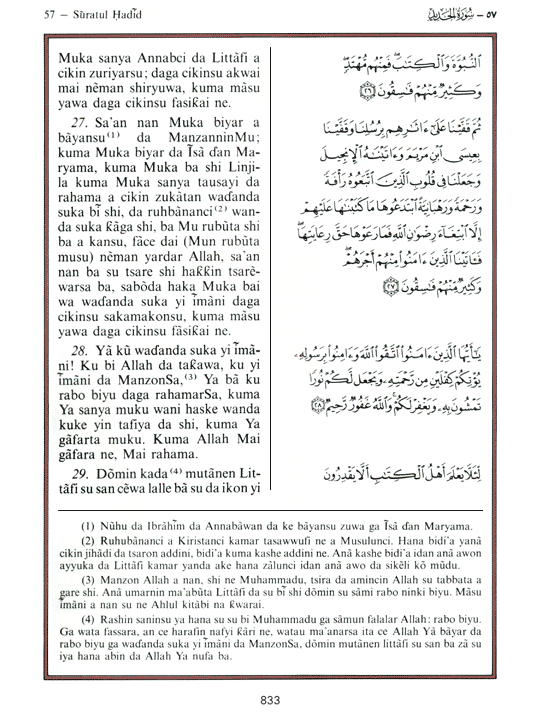 57 — Sūratul Ḥadīd
٥٧ – سُورَةُ الْحَدِيد
Muka sanya Annabci da Littāfi a
cikin zuriyarsu; daga cikinsu akwai
mai nēman shiryuwa, kuma māsu
yawa daga cikinsu fasiƙai ne.
27. Sa'an nan Muka biyar a
bāyansu(1) da ManzanninMu;
kuma Muka biyar da Īsā ɗan Ma-
ryama, kuma Muka ba shi Linji-
la kuma Muka sanya tausayi da
rahama a cikin zukātan waɗanda
suka bī shi, da ruhbānanci(2) wan-
da suka ƙāga shi, ba Mu rubūta shi
ba a kansu, fāce dai (Mun rubūta
musu) nēman yardar Allah, sa'an
nan ba su tsare shi haƙƙin tsarē-
warsa ba, sabōda haka Muka bai
wa waɗanda suka yi īmāni daga
cikinsu sakamakonsu, kuma māsu
yawa daga cikinsu fāsiƙai ne.
28. Yā kū waɗanda suka yi īmā-
ni! Ku bi Allah da taƙawa, ku yi
īmāni da ManzonSa,(3) Ya bā ku
rabo biyu daga rahamarSa, kuma
Ya sanya muku wani haske wanda
kuke yin tafiya da shi, kuma Ya
gāfarta muku. Kuma Allah Mai
gāfara ne, Mai rahama.
29. Dōmin kada(4) mutānen Lit-
tāfi su san cēwa lalle bā su da ikon yi
ٱلنُّبُوَّةَ وَٱلْكِتَٰبَ فَمِنْهُم مُّهْتَدٍ
وَكَثِيرٌ مِّنْهُمْ فَٰسِقُونَ ٢٦
ثُمَّ قَفَّيْنَا عَلَىٰٓ ءَاثَٰرِهِم بِرُسُلِنَا وَقَفَّيْنَا
بِعِيسَى ٱبْنِ مَرْيَمَ وَءَاتَيْنَٰهُ ٱلْإِنجِيلَ
وَجَعَلْنَا فِى قُلُوبِ ٱلَّذِينَ ٱتَّبَعُوهُ رَأْفَةً
وَرَحْمَةً وَرَهْبَانِيَّةً ٱبْتَدَعُوهَا مَا كَتَبْنَٰهَا عَلَيْهِمْ
إِلَّا ٱبْتِغَآءَ رِضْوَٰنِ ٱللَّهِ فَمَا رَعَوْهَا حَقَّ رِعَايَتِهَا
فَـَٔاتَيْنَا ٱلَّذِينَ ءَامَنُوا۟ مِنْهُمْ أَجْرَهُمْ
وَكَثِيرٌ مِّنْهُمْ فَٰسِقُونَ ٢٧
يَٰٓأَيُّهَا ٱلَّذِينَ ءَامَنُوا۟ ٱتَّقُوا۟ ٱللَّهَ وَءَامِنُوا۟ بِرَسُولِهِۦ
يُؤْتِكُمْ كِفْلَيْنِ مِن رَّحْمَتِهِۦ وَيَجْعَل لَّكُمْ نُورًا
تَمْشُونَ بِهِۦ وَيَغْفِرْ لَكُمْ وَٱللَّهُ غَفُورٌ رَّحِيمٌ ٢٨
لِّئَلَّا يَعْلَمَ أَهْلُ ٱلْكِتَٰبِ أَلَّا يَقْدِرُونَ
(1) Nūhu da Ibrāhīm da Annabāwan da ke bāyansu zuwa ga Īsā ɗan Maryama.
(2) Ruhubānanci a Kiristanci kamar tasawwufi ne a Musulunci. Hana bidi'a yanā
cikin jihādi da tsaron addini, bidi'a kuma kashe addini ne. Anā kashe bidi'a idan anā awon
ayyuka da Littāfi kamar yanda ake hana zālunci idan anā awo da sikēli kō mūdu.
(3) Manzon Allah a nan, shi ne Muhammadu, tsira da amincin Allah su tabbata a
gare shi. Anā umarnin ma'abūta Littāfi da su bī shi dōmin su sāmi rabo ninki biyu. Māsu
īmāni a nan su ne Ahlul kitābi na ƙwarai.
(4) Rashin saninsu ya hana su su bi Muhammadu ga sāmun falalar Allah: rabo biyu.
Ga wata fassara, an ce harafin nafyi ƙāri ne, watau ma'anarsa ita ce Allah Yā bāyar da
rabo biyu ga waɗanda suka yi īmāni da ManzonSa, dōmin mutānen littāfi su san ba zā su
iya hana abin da Allah Ya nufa ba.
833